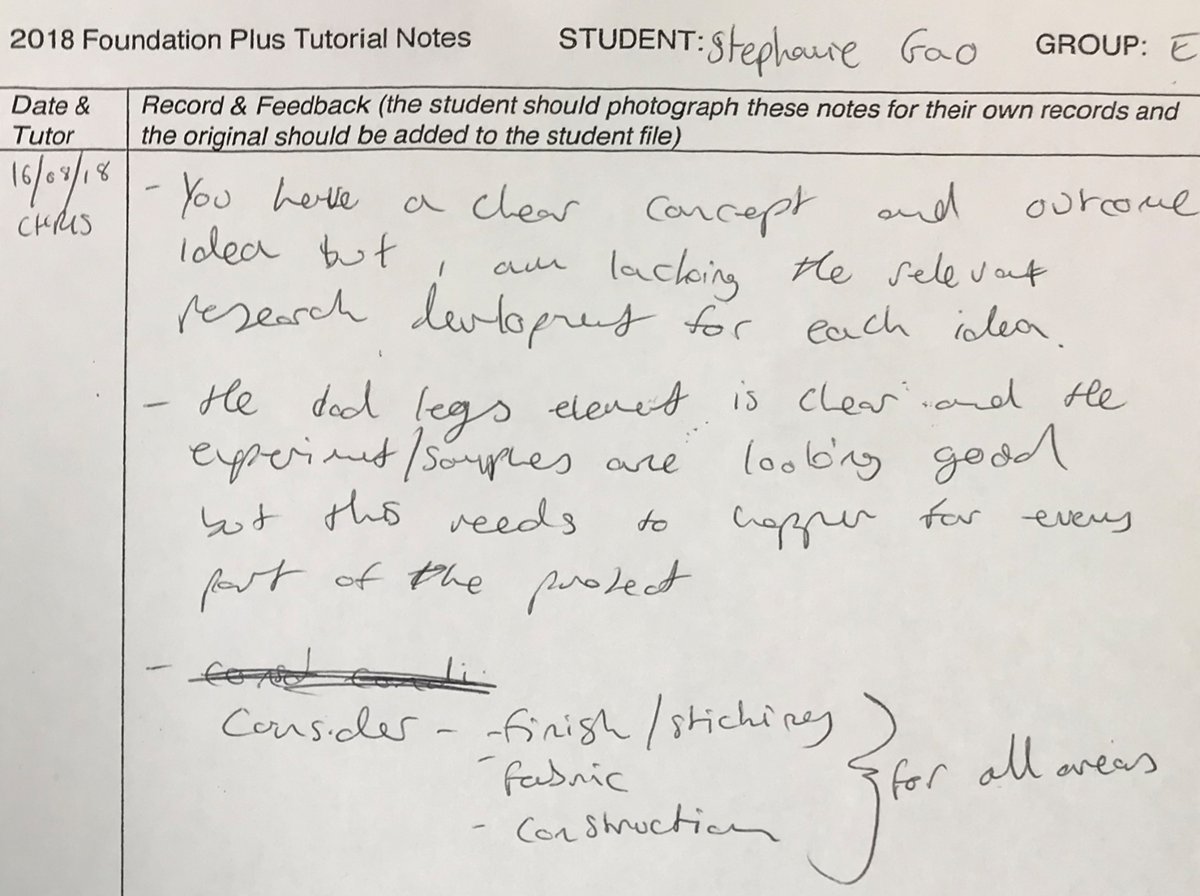 2018 Foundation Plus Tutorial Notes STUDENT: Stephanie Gao GROUP: E
Date & Tutor
Record & Feedback (the student should photograph these notes for their own records and
the original should be added to the student file)
16/08/18
CHRIS
- You have a clear concept and outcome
idea but i am lacking the relevant
research development for each idea.
- the dad legs element is clear and the
experiment/samples are looking good
but this needs to happen for every
part of the project
-
Consider - - finish/stiching
- fabric
- construction
} for all areas